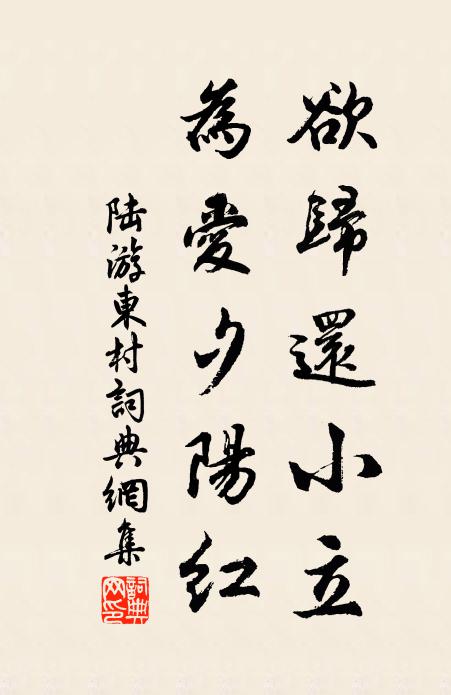 欲歸還小立
為愛夕陽紅
陸游東村詞典網集
詞典网印